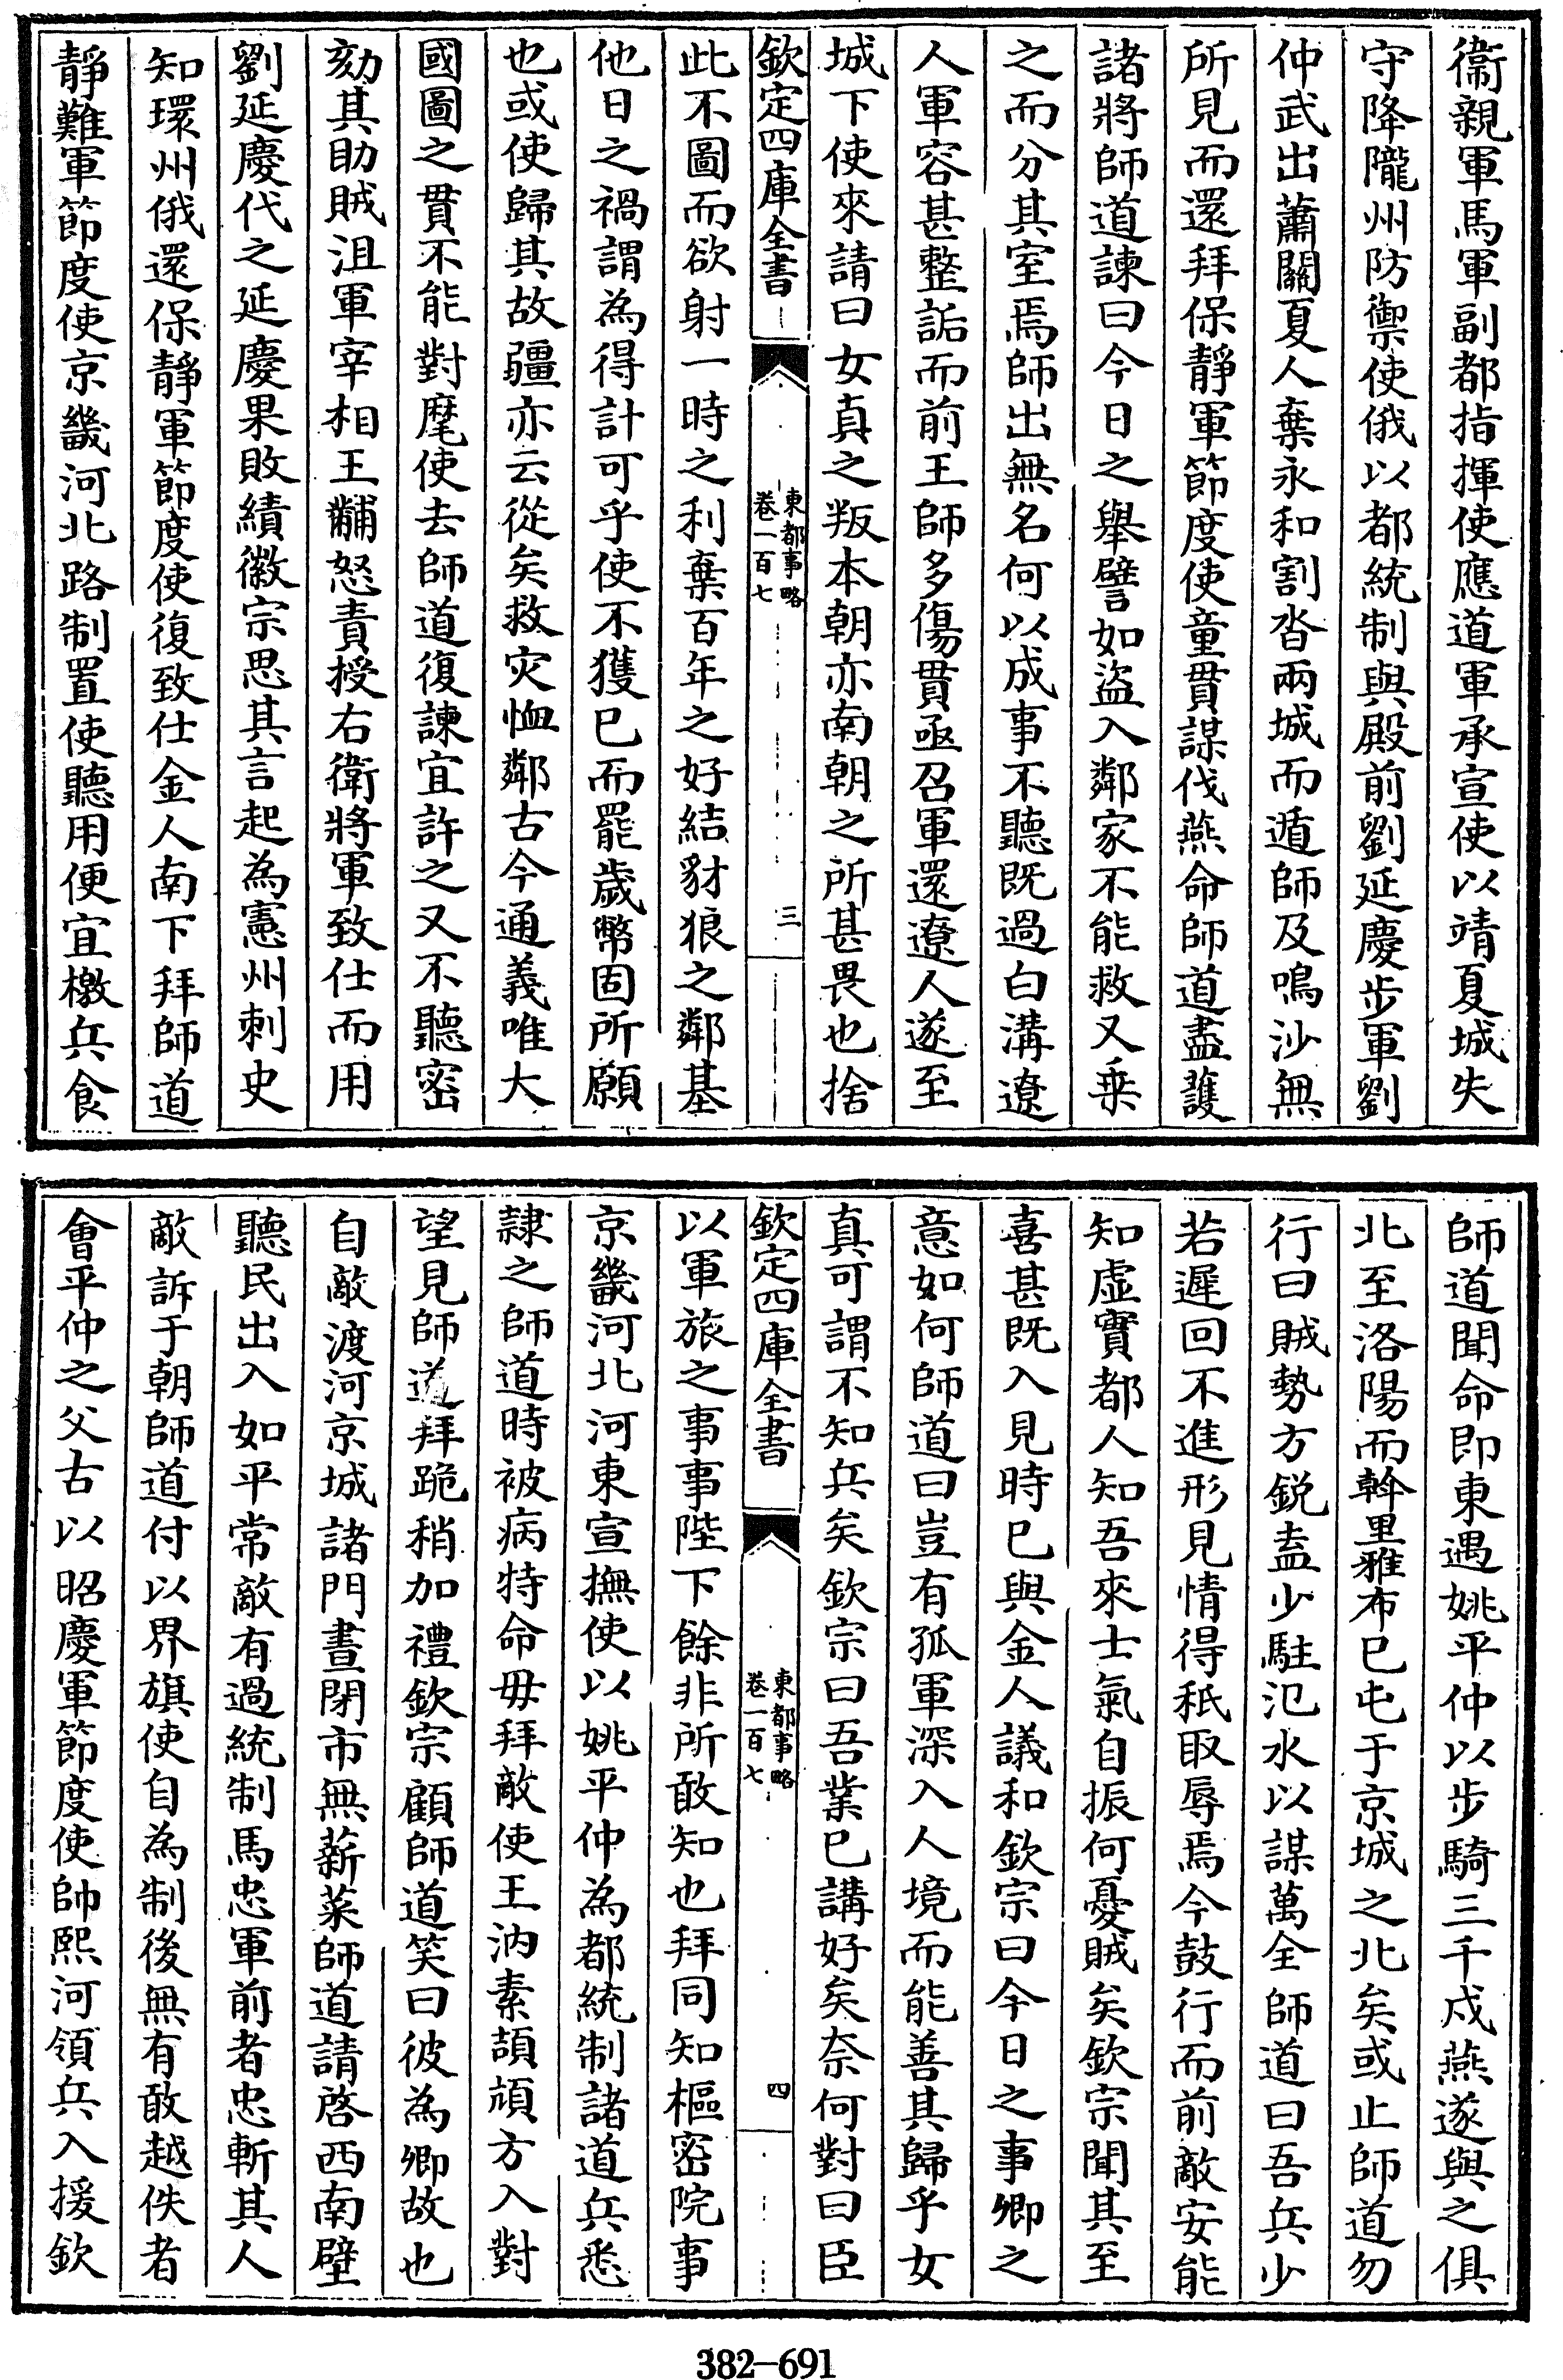 衞親軍馬軍副都指揮使應道軍承宣使以靖夏城失
守降隴州防禦使俄以都統制與殿前劉延慶步軍劉
仲武出蕭關夏人棄永和割沓兩城而遁師及鳴沙無
所見而還拜保靜軍節度使童貫謀伐燕命師道盡護
諸將師道諫曰今日之舉譬如盜入鄰家不能救又乗
之而分其室焉師出無名何以成事不聽既過白溝遼
人軍容甚整詬而前王師多傷貫亟召軍還遼人遂至
城下使來請曰女真之叛本朝亦南朝之所甚畏也捨
欽定四庫全書
東都事略
卷一百七
三
此不圖而欲射一時之利棄百年之好結豺狼之鄰基
他日之禍謂為得計可乎使不獲已而罷歲幣固所願
也或使歸其故疆亦云從矣救災恤鄰古今通義唯大
國圖之貫不能對麾使去師道復諫宜許之又不聽密
劾其助賊沮軍宰相王黼怒責授右衛將軍致仕而用
劉延慶代之延慶果敗績徽宗思其言起為憲州刺史
知環州俄還保靜軍節度使復致仕金人南下拜師道
靜難軍節度使京畿河北路制置使聽用便宜檄兵食
師道聞命即東遇姚平仲以步騎三千戍燕遂與之俱
北至洛陽而斡里雅布已屯于京城之北矣或止師道勿
行曰賊勢方銳盍少駐汜水以謀萬全師道曰吾兵少
若遲回不進形見情得秖取辱焉今鼓行而前敵安能
知虛實都人知吾來士氣自振何憂賊矣欽宗聞其至
喜甚既入見時已與金人議和欽宗曰今日之事卿之
意如何師道曰豈有孤軍深入人境而能善其歸乎女
真可謂不知兵矣欽宗曰吾業已講好矣奈何對曰臣
欽定四庫全書
東都事略
卷一百七
四
以軍旅之事事陛下餘非所敢知也拜同知樞密院事
京畿河北河東宣撫使以姚平仲為都統制諸道兵悉
隸之師道時被病特命毋拜敵使王汭素頡頏方入對
望見師道拜跪稍加禮欽宗顧師道笑曰彼為卿故也
自敵渡河京城諸門晝閉市無薪菜師道請啓西南壁
聽民出入如平常敵有過統制馬忠軍前者忠斬其人
敵訴于朝師道付以界旗使自為制後無有敢越佚者
會平仲之父古以昭慶軍節度使帥熙河領兵入援欽
382-691